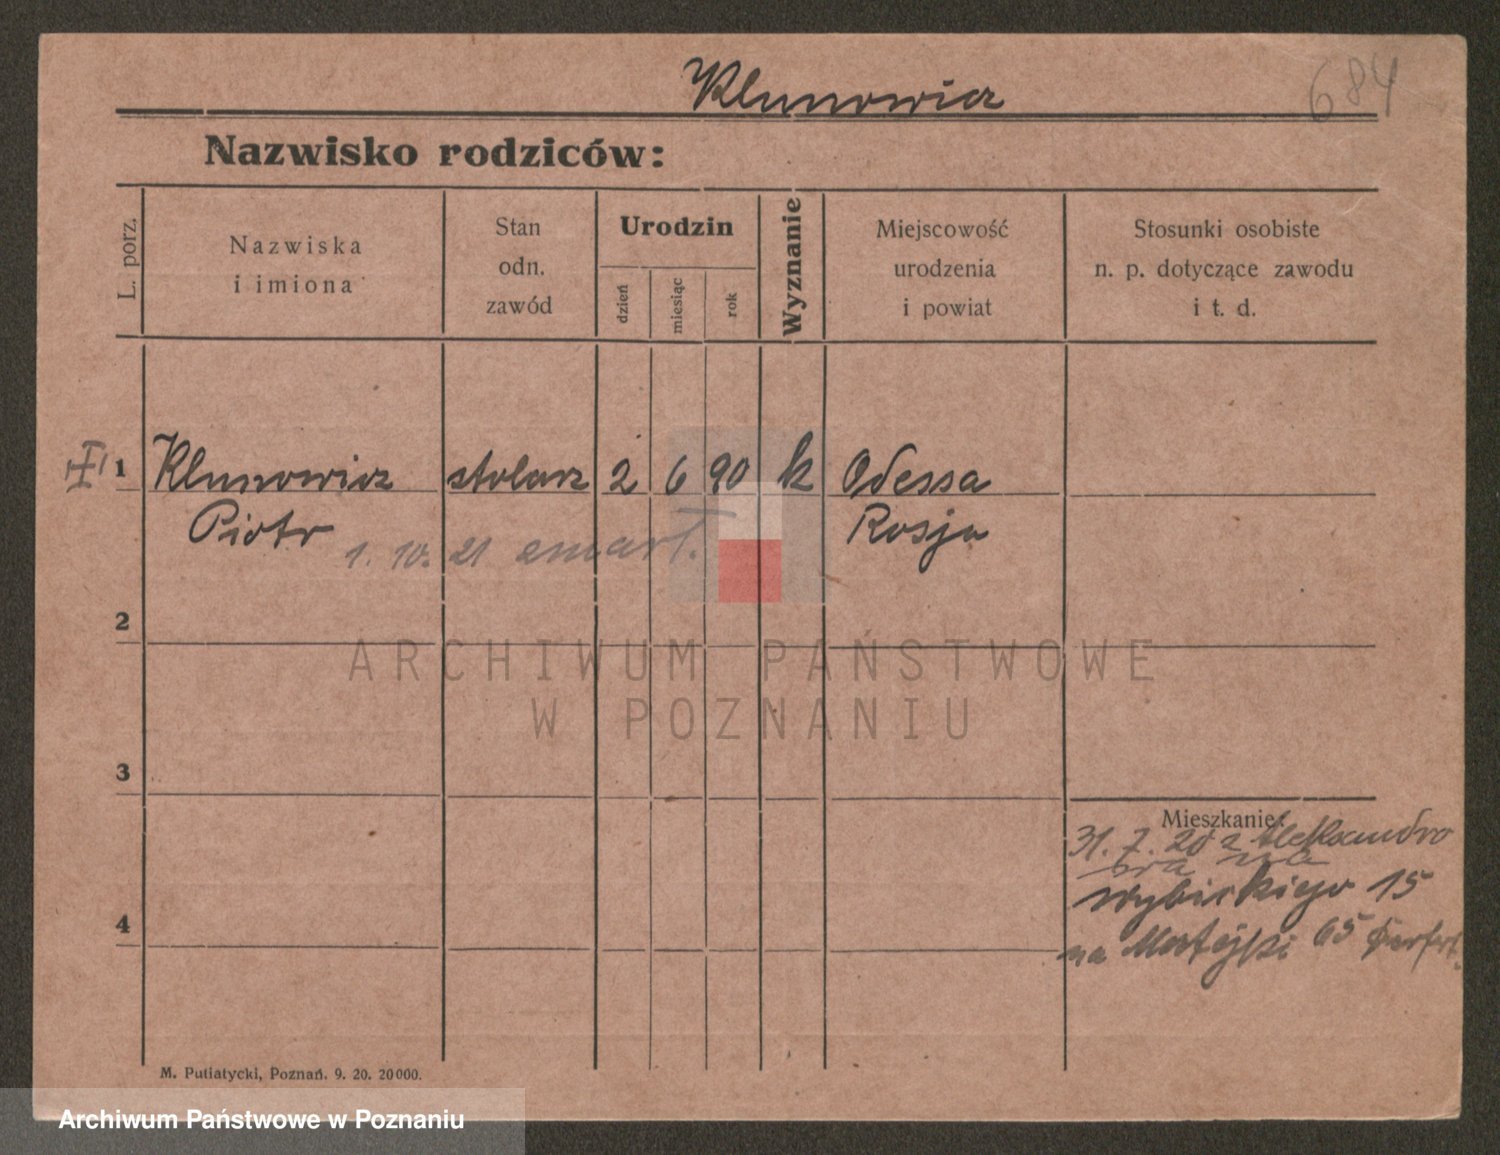 Klunowicz
684
Nazwisko rodziców:
L. porz.
Nazwiska
i imiona
Stan
odn.
zawód
Urodzin
dzień
miesiąc
rok
Wyznanie
Miejscowość
urodzenia
i powiat
Stosunki osobiste
n. p. dotyczące zawodu
i t. d.
1 Klunowicz stolarz 2 6 90 k Odessa
Piotr Rosja
1. 10. 21 zmarł.
2
ARCHIWUM PAŃSTWOWE
W POZNANIU
3
Mieszkanie:
31. 7. 20 z Aleksandro
wa na
Wybickiego 15
na Matejki 65
4
M. Putiatycki, Poznań. 9. 20. 20000.
Archiwum Państwowe w Poznaniu